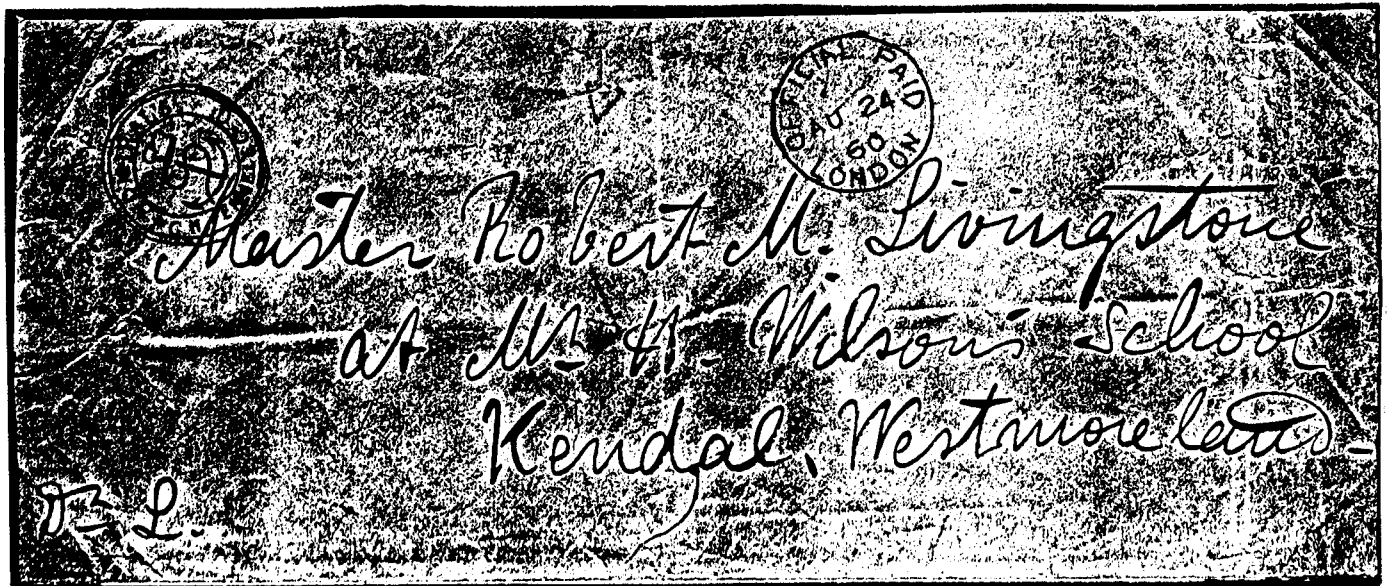 OFFICIAL PAID
AU 24
60
LONDON
Master Robert M. Livingstone
at Mr H. Wilson's School
Kendal, Westmoreland -
Dr L.